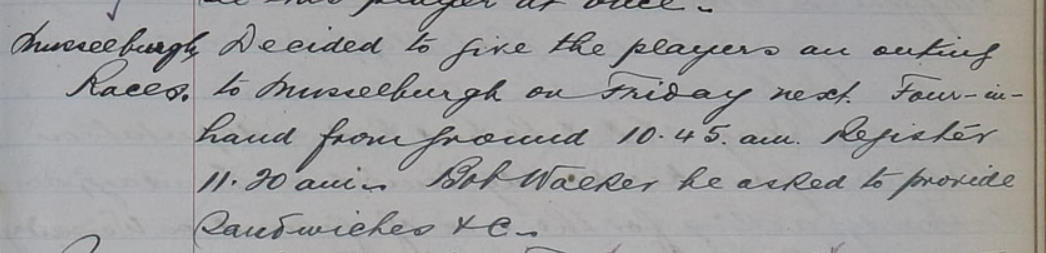 this player at once.
Musselburgh Decided to give the players an outing
Races. to Musselburgh on Friday next. Four-in-
hand from ground 10.45. am. Register
11.20 am. Bob Walker be asked to provide
Sandwiches &C.